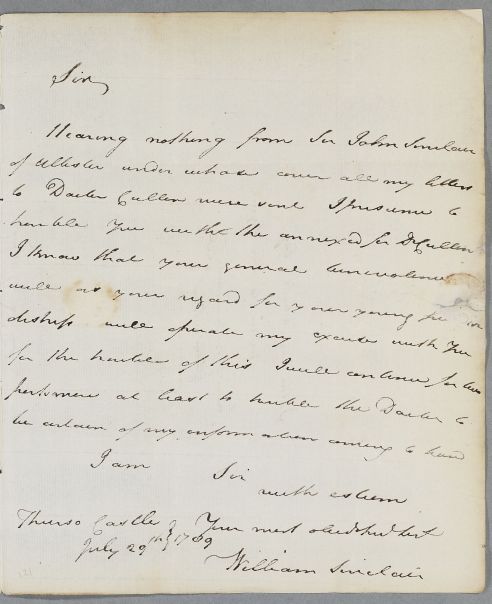 Sir
Hearing nothing from Sir John Sinclair
of Ulbster under whose cover all my letters
to Docter Cullen were sent I presume to
trouble you with the annexed for Dr Cullen
I know that your general benevolence
well as your regard for your young
distress will operate my excuse with you
for the trouble of this I will continue for two
posts more at least to trouble the Docter to
be certain of my information coming to hand
I am
Sir
with esteem
Thurso Castle } Your most obed
July 29th } 1789
William Sinclair
121